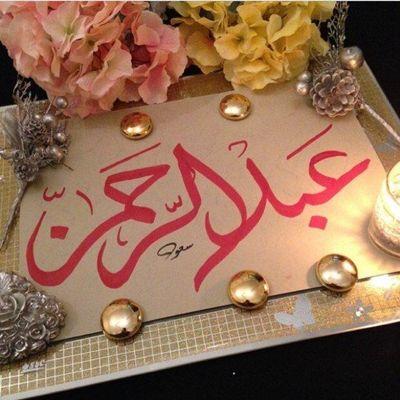 عَبدالرَّحمٰنّ
سعود